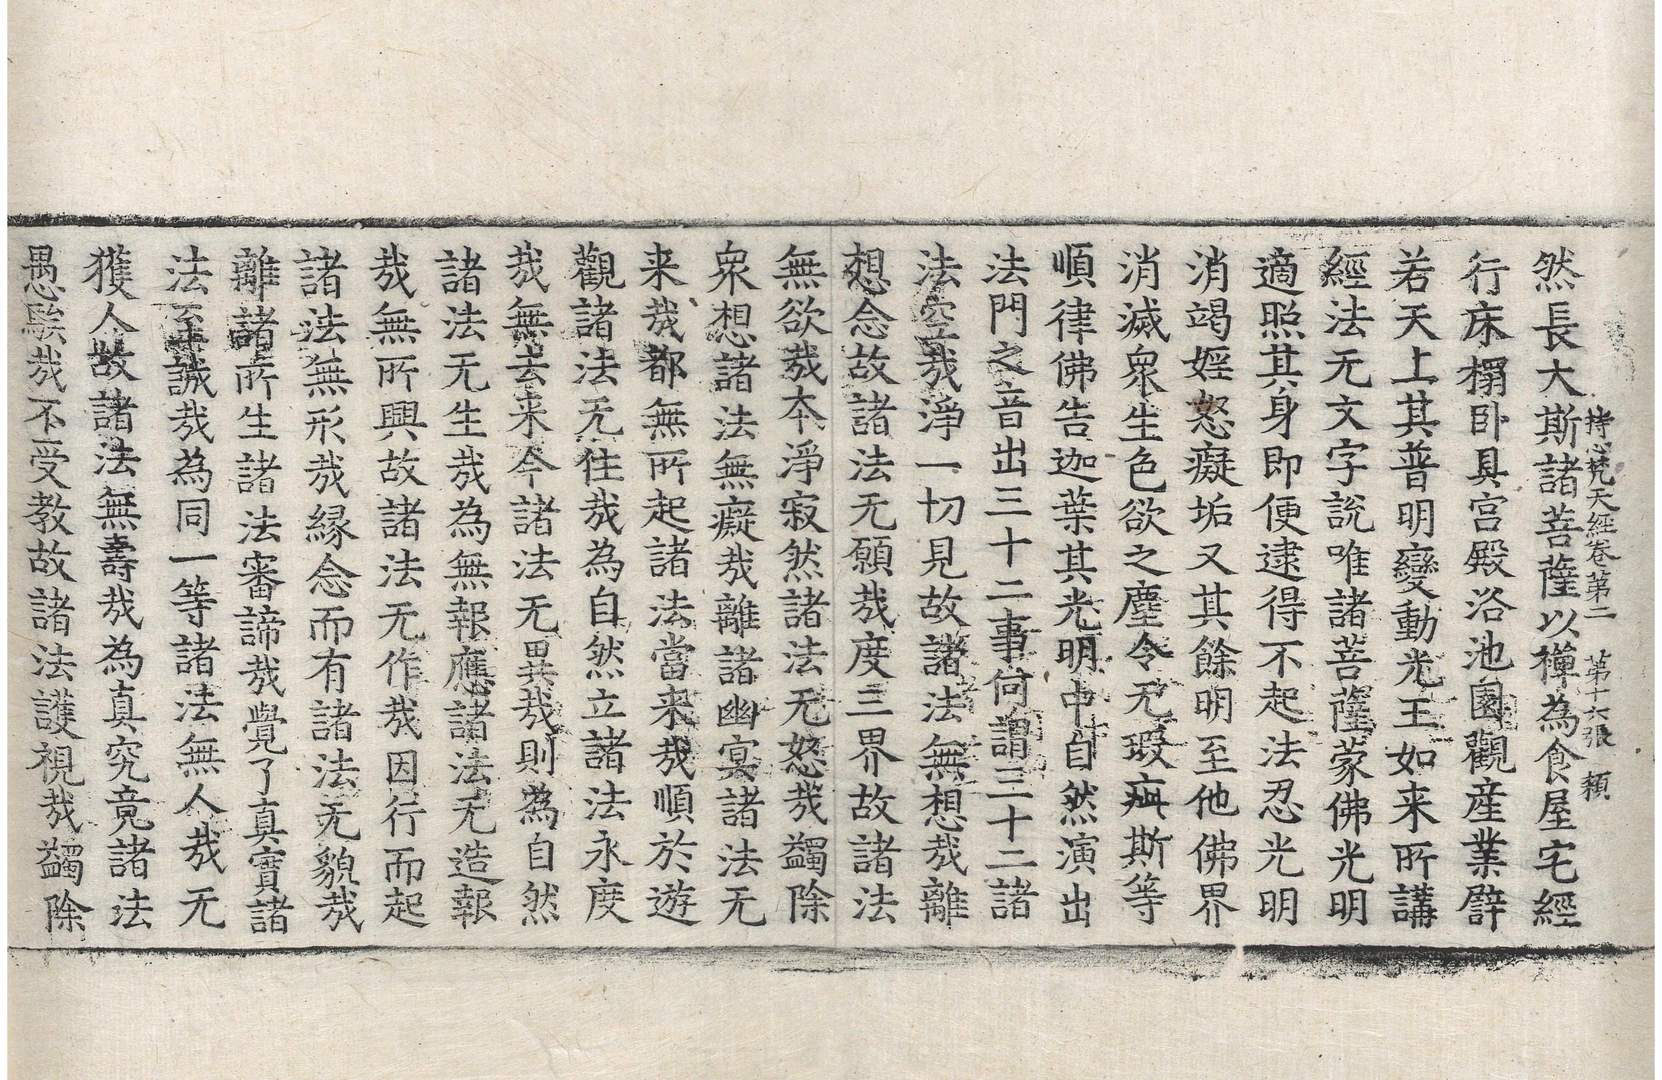 持心梵天經卷第二　第十六張　頼
然長大斯諸菩薩以禪為食屋宅經
行床榻卧具宮殿浴池園觀産業譬
若天上其普明變動光王如来所講
經法无文字說唯諸菩薩蒙佛光明
適照其身即便逮得不起法忍光明
消竭婬怒癡垢又其餘明至他佛界
消滅衆生色欲之塵令无瑕疵斯等
順律佛告迦葉其光明中自然演出
法門之音出三十二事何謂三十二諸
法空哉淨一切見故諸法無想哉離
想念故諸法无願哉度三界故諸法
無欲哉本淨寂然諸法无怒哉蠲除
衆想諸法無癡哉離諸幽冥諸法无
来哉都無所起諸法當来哉順於遊
觀諸法无住哉為自然立諸法永度
哉無去来今諸法无異哉則為自然
諸法无生哉為無報應諸法无造報
哉無所興故諸法无作哉因行而起
諸法無形哉縁念而有諸法无貌哉
離諸所生諸法審諦哉覺了真實諸
法至誠哉為同一等諸法無人哉无
獲人故諸法無壽哉為真究竟諸法
愚騃哉不受教故諸法護視哉蠲除